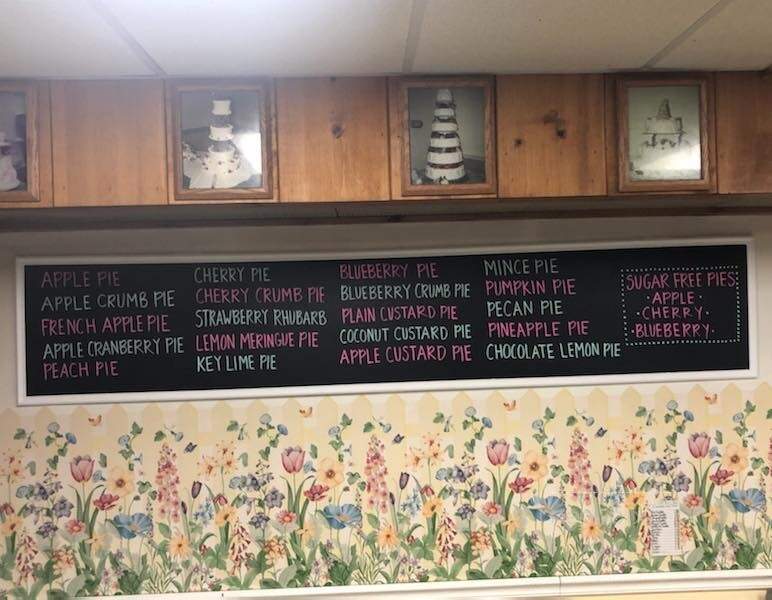 APPLE PIE
APPLE CRUMB PIE
FRENCH APPLE PIE
APPLE CRANBERRY PIE
PEACH PIE
CHERRY PIE
CHERRY CRUMB PIE
STRAWBERRY RHUBARB
LEMON MERINGUE PIE
KEY LIME PIE
BLUEBERRY PIE
BLUEBERRY CRUMB PIE
PLAIN CUSTARD PIE
COCONUT CUSTARD PIE
APPLE CUSTARD PIE
MINCE PIE
PUMPKIN PIE
PECAN PIE
PINEAPPLE PIE
CHOCOLATE LEMON PIE
SUGAR FREE PIES:
· APPLE ·
· CHERRY ·
· BLUEBERRY ·